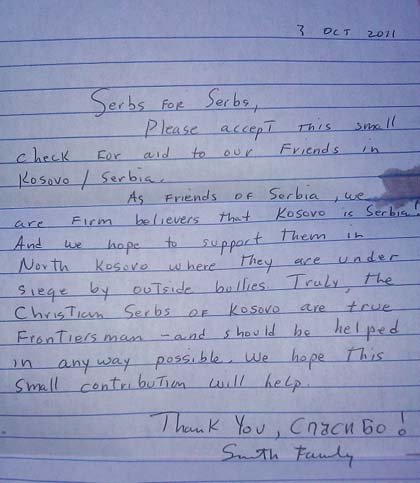 3 OCT 2011
Serbs For Serbs,
Please accept this small
check For aid to our Friends in
Kosovo / Serbia.
As Friends of Serbia, we
are Firm believers that Kosovo is Serbia!
And we hope to support them in
North Kosovo where they are under
siege by outside bullies. Truly, the
Christian Serbs of Kosovo are true
Frontiersman - and should be helped
in anyway possible. We hope this
small contribution will help.
Thank You, Спасибо!
Smith Family